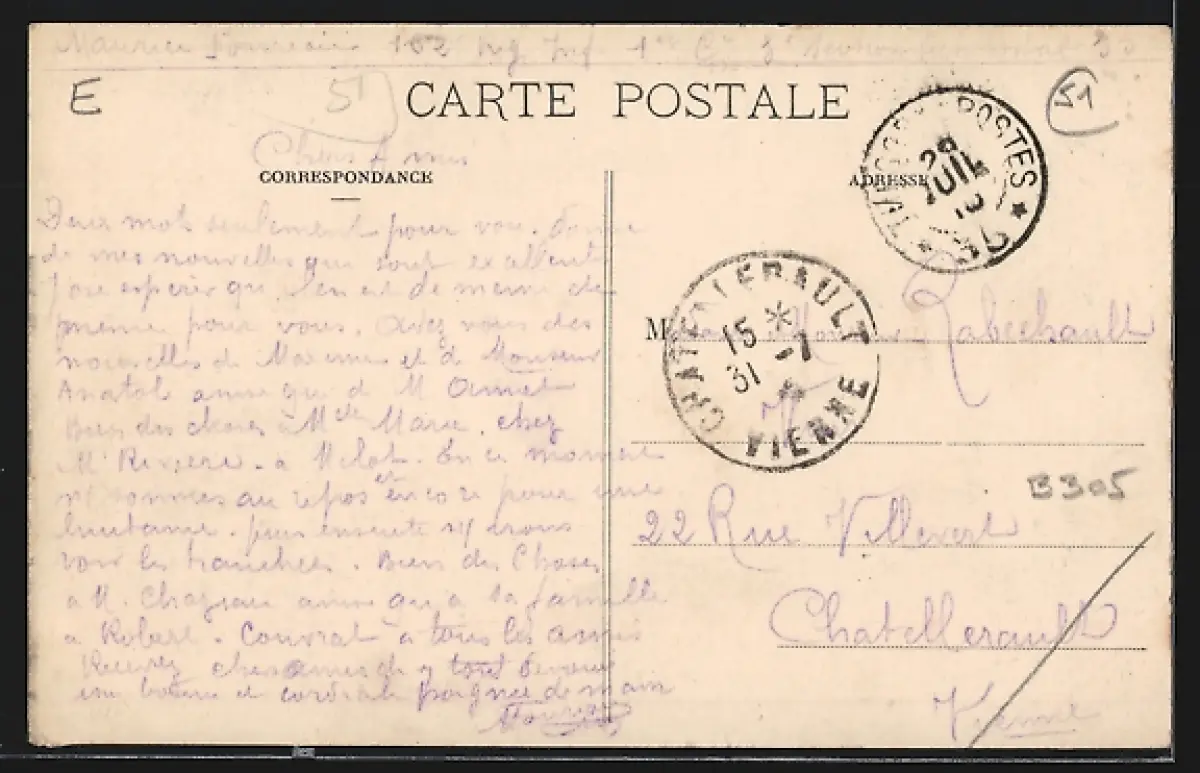 Maurice 162 Rg Inf 1re Cie 3e Section
E
51
CARTE POSTALE
51
TRESOR ET POSTES * 29 JUIL 15 *
Chers Amis
CORRESPONDANCE
ADRESSE
Deux mots seulement pour vous donne
de mes nouvelles qui sont exellent
J'ose esperer qu'il en est de meme de
meme pour vous. Avez vous des
nouvelles de Maxime et de Monsieur
Anatol ainsi que de M
Bien des choses a Melle Marie. chez
Mr Riviere. a Melot. En ce moment
ns sommes au repos et encore pour une
huitaine. puis ensuite ns irons
voir les tranchees. Bien des Choses
a M. Chazeau ainsi qu'a sa famille
a Robert. Couvrat a tous les amis
Recevez chers amis de votre tout devoué
une bonne et cordiale poignée de main
Maurice
CHATELLERAULT VIENNE 15 * 31 -7
M Rabechault
B305
22 Rue Villevert
Chatellerault
Vienne